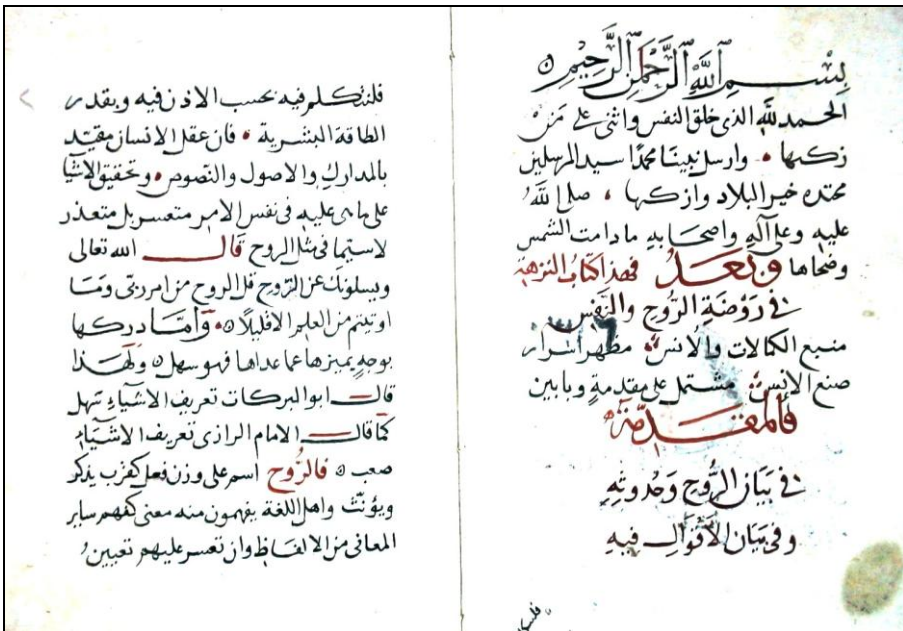 بِسْــمِ اللَّهِ الرَّحْمٰنِ الرَّحِيْمِ
الحـمد للَّهِ الذى خلق النفس واثنى على مَنْ
زكىها • وارسل نبينا محمدًا سيد المرسلين
خير البلاد وازكىها • صلى اللَّهُ
عليه وعلى آلهِ واصحابهِ مادامت الشمس
وضحاها وَبَعْــدُ فهذا كتابُ النزهة
فى رَوْضَةِ الرُّوحِ والنَّفْسِ
منبع الكمالات والانس • مظهر اسرار
صنع الإنس • مشتمل على مقدمةٍ وبابين
فالْمُقَــدِّمَة
فى بَيَانِ الرُّوحِ وَحُدُوثِهِ
وفى بَيَان الأَقْوَالِ فيهِ
فلنتكلم فيه بحسب الاذن فيه وبقدر
الطاقة البشرية • فان عقل الانسان مقيّد
بالمداركِ والاصول والنّصوص • وتحقيق الاشيا
على ماهى عليه فى نفس الامر متعسر بل متعذر
لاسيّما فى مثل الروح قَالَ الله تعالى
ويسلونك عن الرّوح قل الروح من امر ربّى وَمَا
اوتيتم من العلم الاقليلًا • وَأمَّا دركها
بوجهٍ يميزها عما عداها فهو سهل ولهـذا
قال ابوالبركات تعريف الاشياءِ سَهل
كما قال الامام الرازى تعريف الاشياءِ
صعب فالرُّوح اسم على وزن فعل كقرب يذكر
ويؤنّث واهل اللغة يفهمون منه معنى كفهم ساير
المعانى من الالفاظ وان تعسر عليهم تعيينُ